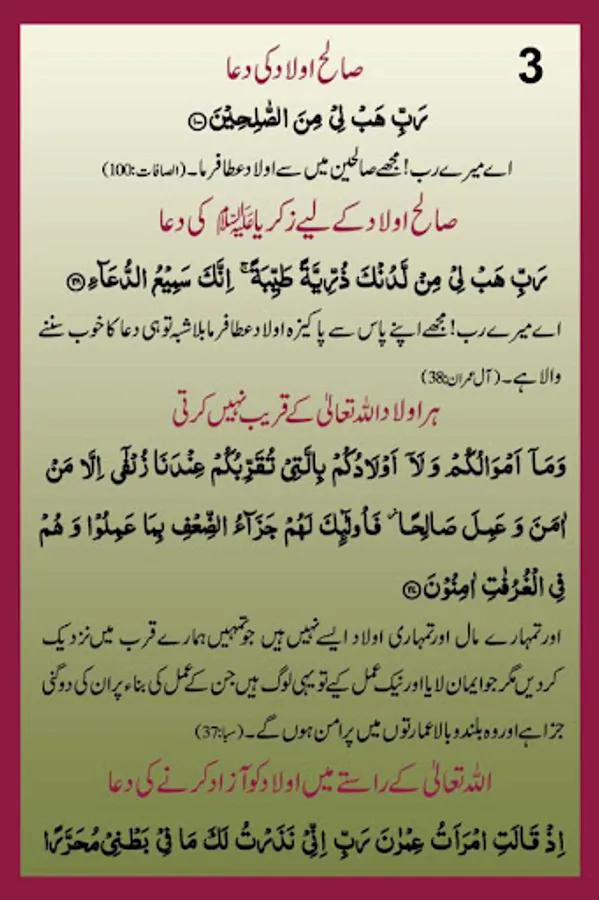 3
صالح اولاد کی دعا
رَبِّ هَبْ لِیْ مِنَ الصّٰلِحِیْنَ ﴿۱۰۰﴾
اے میرے رب! مجھے صالحین میں سے اولاد عطا فرما۔ (الصافات:100)
صالح اولاد کے لیے زکریا علیہ السلام کی دعا
رَبِّ هَبْ لِیْ مِنْ لَّدُنْكَ ذُرِّیَّةً طَیِّبَةً ۚ اِنَّكَ سَمِیْعُ الدُّعَآءِ ﴿۳۸﴾
اے میرے رب! مجھے اپنے پاس سے پاکیزہ اولاد عطا فرما بلاشبہ تو ہی دعا کا خوب سننے
والا ہے۔ (آل عمران:38)
ہر اولاد اللہ تعالیٰ کے قریب نہیں کرتی
وَمَاۤ اَمْوَالُكُمْ وَ لَاۤ اَوْلَادُكُمْ بِالَّتِیْ تُقَرِّبُكُمْ عِنْدَنَا زُلْفٰۤی اِلَّا مَنْ
اٰمَنَ وَ عَمِلَ صَالِحًا ؗ فَاُولٰٓىِٕكَ لَهُمْ جَزَآءُ الضِّعْفِ بِمَا عَمِلُوْا وَ هُمْ
فِی الْغُرُفٰتِ اٰمِنُوْنَ ﴿۳۷﴾
اور تمہارے مال اور تمہاری اولاد ایسے نہیں ہیں جو تمہیں ہمارے قرب میں نزدیک
کر دیں مگر جو ایمان لایا اور نیک عمل کیے تو یہی لوگ ہیں جن کے عمل کی بناء پر ان کی دوگنی
جزا ہے اور وہ بلند و بالا عمارتوں میں پر امن ہوں گے۔ (سبا:37)
اللہ تعالیٰ کے راستے میں اولاد کو آزاد کرنے کی دعا
اِذْ قَالَتِ امْرَاَتُ عِمْرٰنَ رَبِّ اِنِّیْ نَذَرْتُ لَكَ مَا فِیْ بَطْنِیْ مُحَرَّرًا